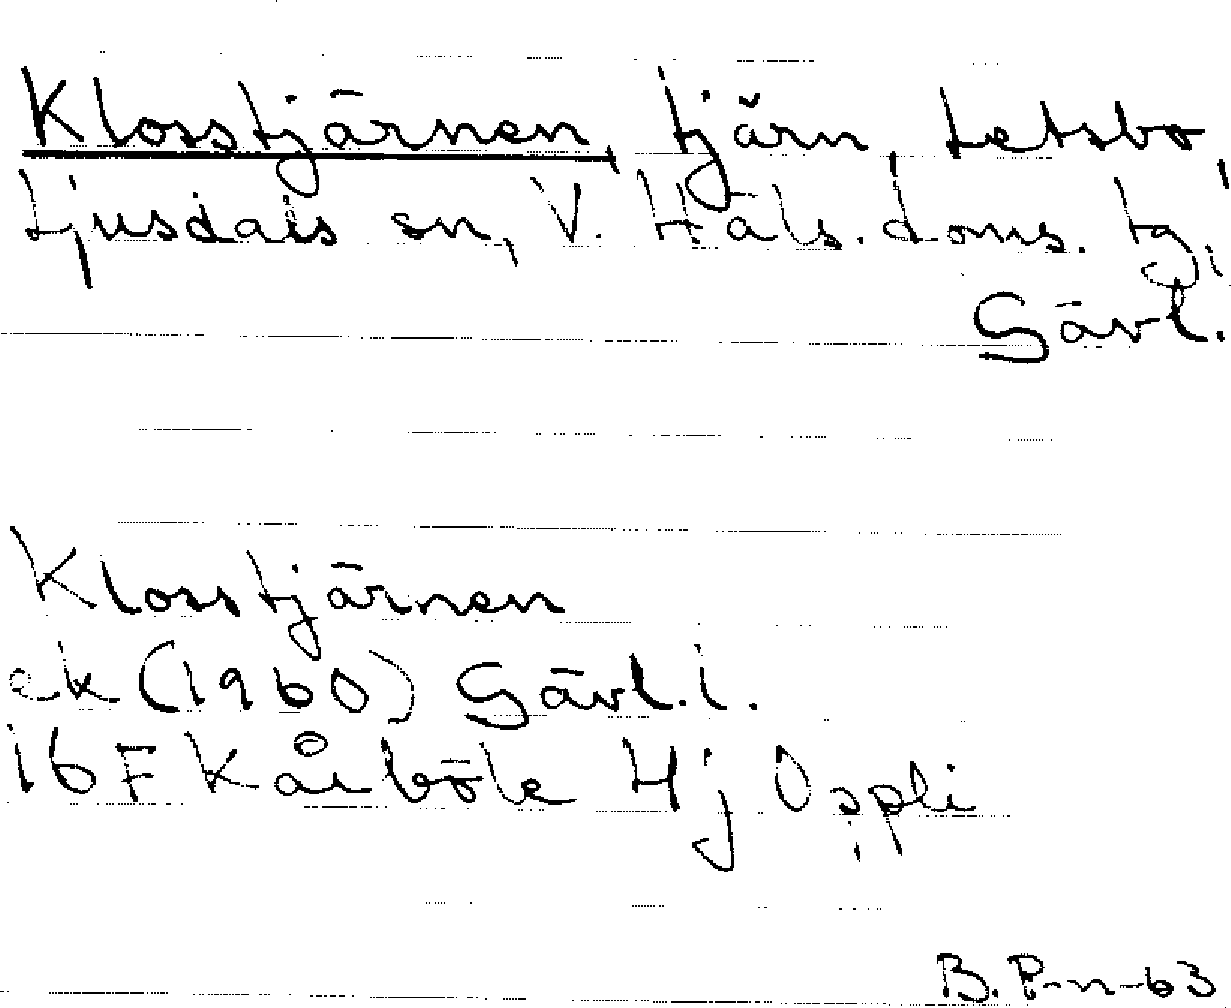 Klosstjärnen, tjärn, Letsbo,
Ljusdals sn, V. Häls. doms. tg,
Gävl.
Klosstjärnen
ek (1960) Gävl. l.
16 F Kårböle 4 j Oppli
B. P-n-63